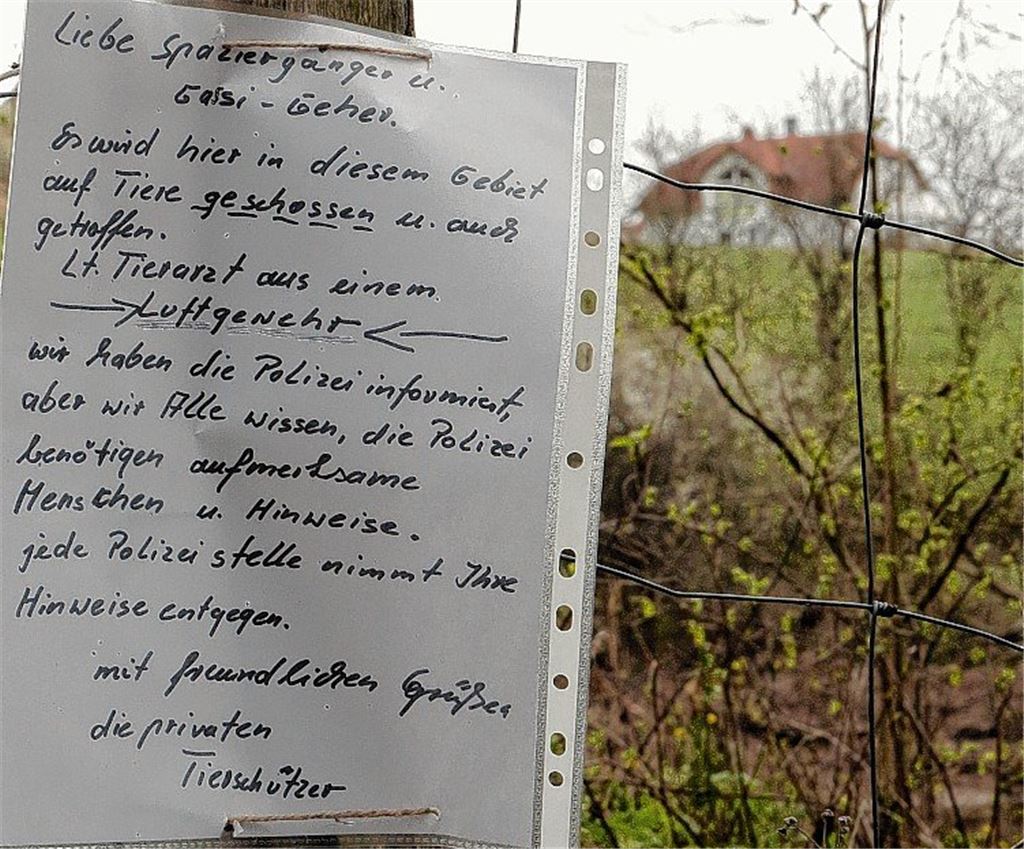 Liebe Spaziergänger u.
Gassi-Geher.
Es wird hier in diesem Gebiet
auf Tiere geschossen u. auch
getroffen.
Lt. Tierarzt aus einem
Luftgewehr
wir haben die Polizei informiert,
aber wir Alle wissen, die Polizei
benötigen aufmerksame
Menschen u. Hinweise.
jede Polizeistelle nimmt Ihre
Hinweise entgegen.
mit freundlichen Grüßen
die privaten
Tierschützer